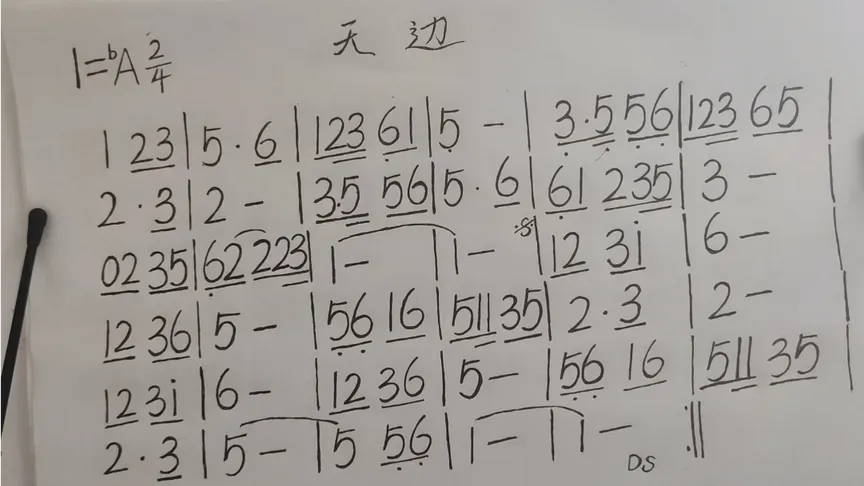 天边
1=ᵇA 2/4
1 23 | 5 · 6 | 123 61 | 5 - | 3·5 56 | 123 65 |
2 · 3 | 2 - | 3·5 56 | 5 · 6 | 61 235 | 3 - |
02 35 | 62 223 | 1 - | 1 - 𝄋 | 12 3i | 6 - |
12 36 | 5 - | 56 16 | 511 35 | 2 · 3 | 2 - |
12 3i | 6 - | 12 36 | 5 - | 56 16 | 511 35 |
2 · 3 | 5 - | 5 56 | 1 - | 1 - DS :||